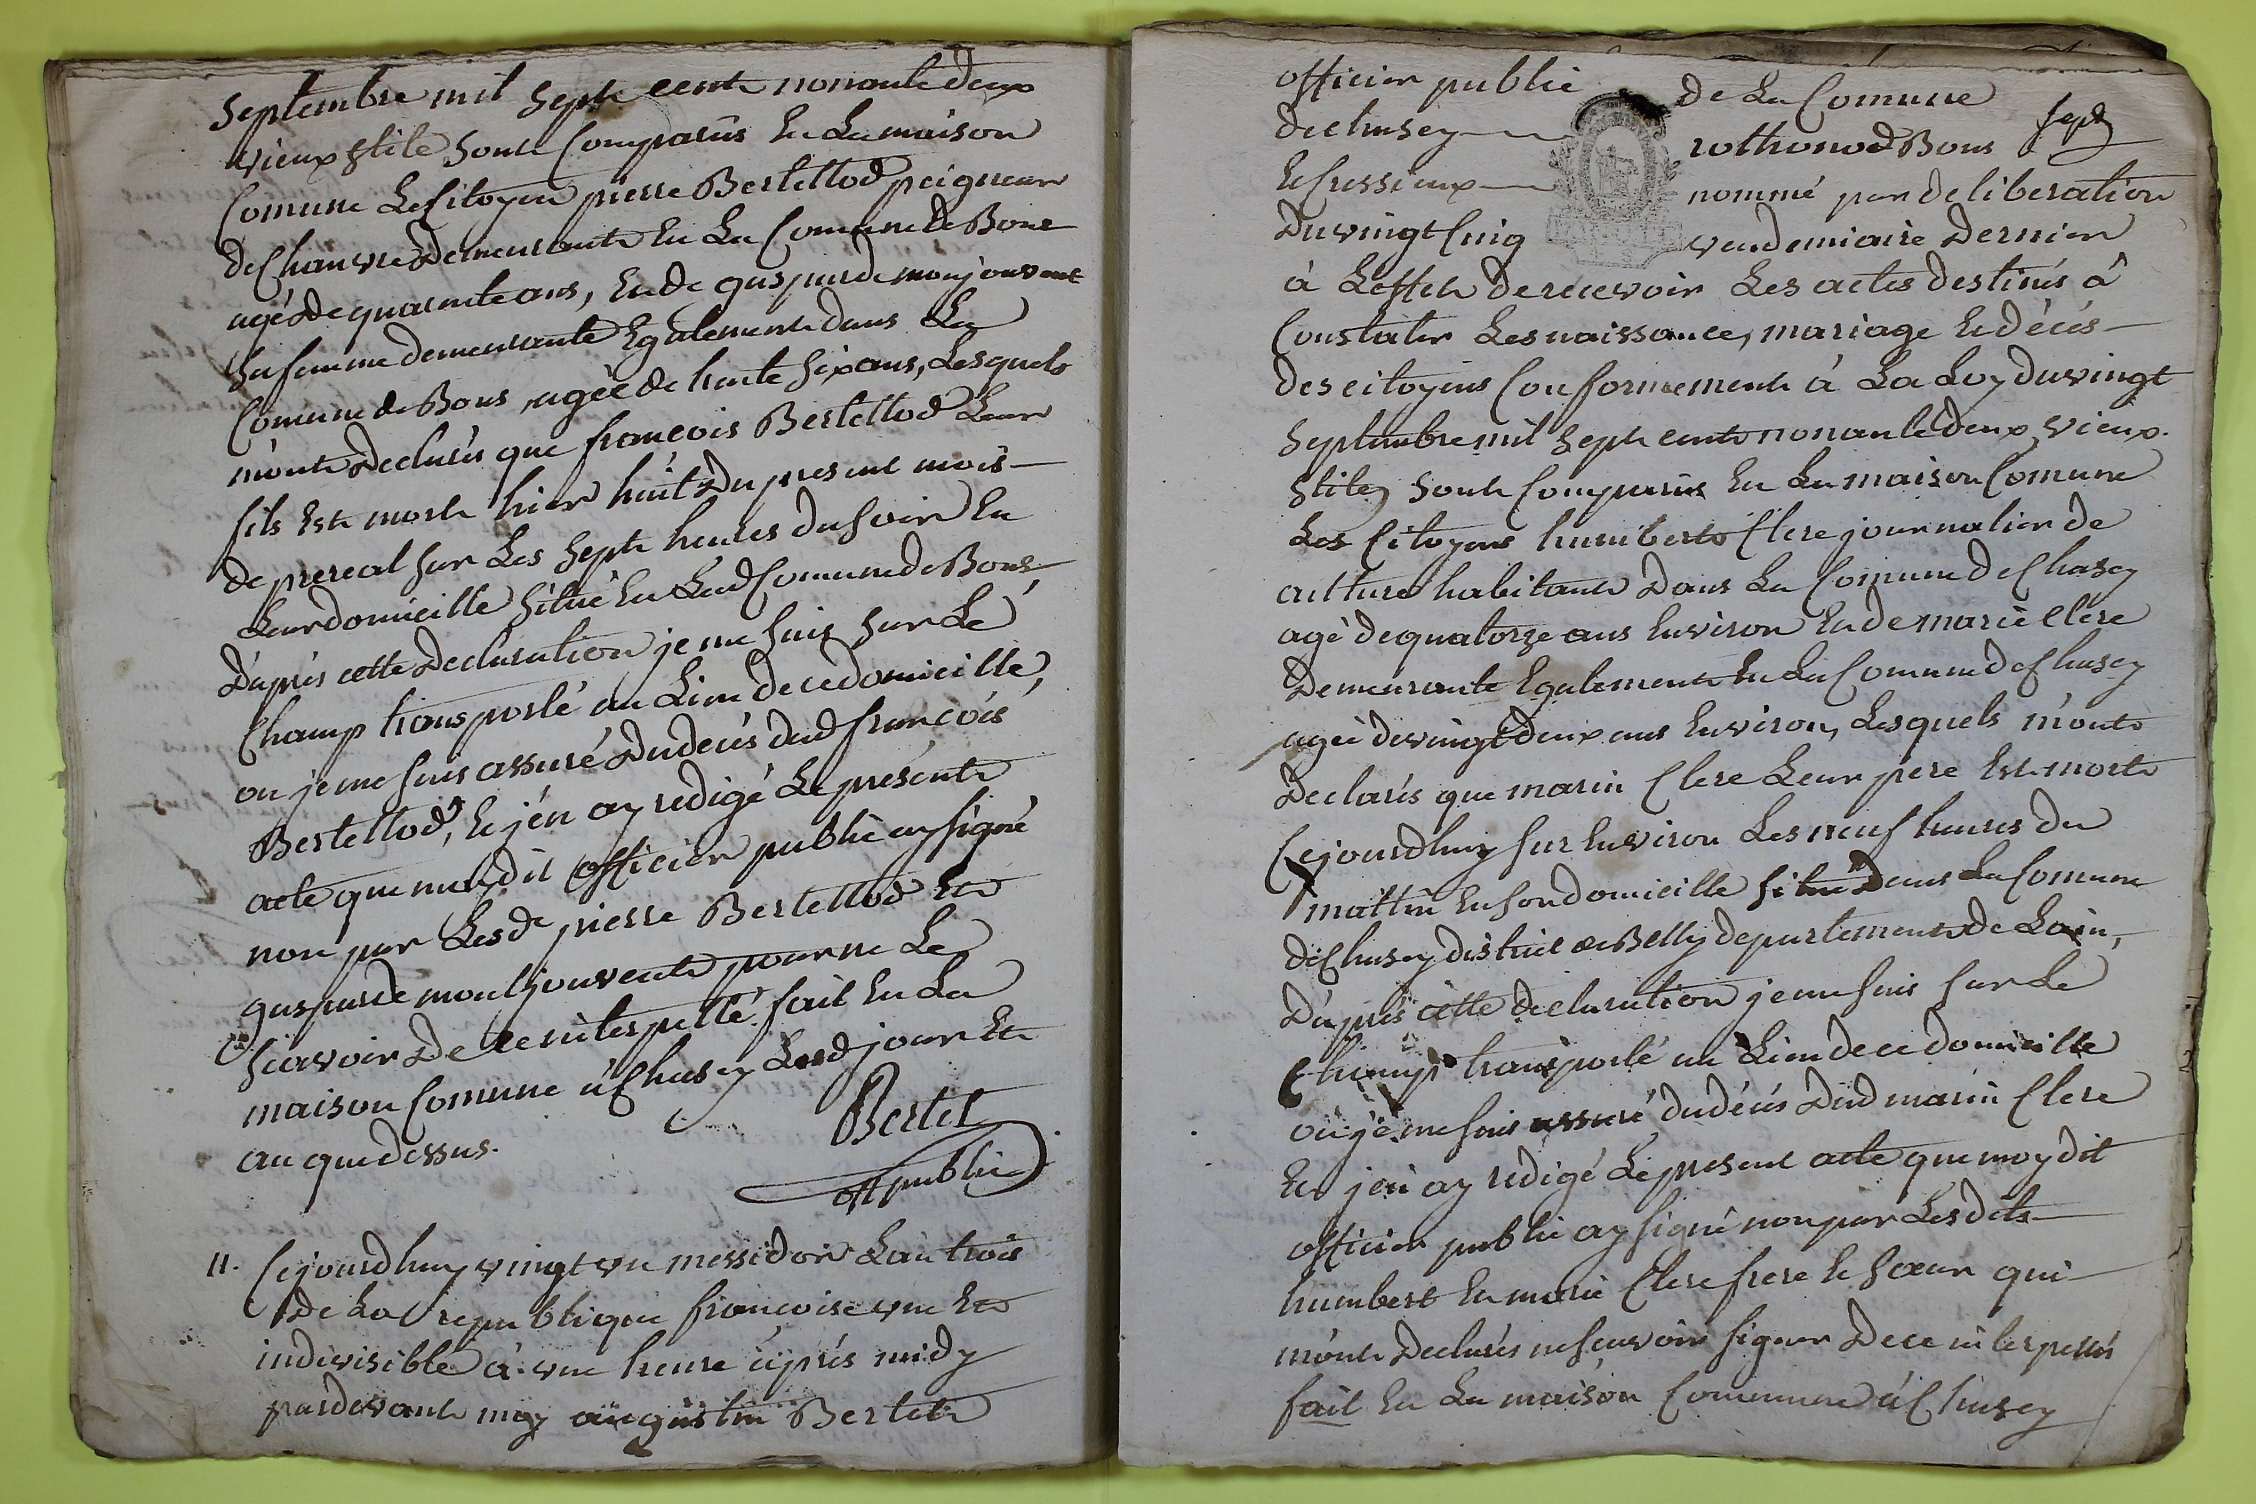 Septembre mil Sept cent nonante deux
vieux stile sont Comparûs En La maison
Comune Le Citoyen pierre Bertellod peigneur
de Chanvre demeurant En La Comune de Bons
agé de quarente ans, Et de gasparde monjouvent
sa femme demeurante Egalement dans La
Comune de Bons, agée de trente six ans, Lesquels
m'ont declarés que françois Bertellod Leur
fils Est mort hier huit du present mois
de prereal sur Les Sept heures du soir En
Leur domicille situé En Lad Comune de Bons
D'aprés cette declaration je me suis sur Le
Champ transporté au Lieu de ce domicille,
ou je me suis assuré du decés dud françois
Bertellod, Et j'en ay redigé Le présent
acte que moydit officier public ay signé
non par Lesd pierre Bertellod Et
gasparde montjouvent pour ne Le
sçavoir De ce interpellé. fait En La
maison Comune à Chasey Lesd jour Et
an que dessus.
Bertet
off public
11. Cejourdhuy vingt un messidor L'an trois
De La republique françoise une Et
indivisible à une heure après midy
pardevant moy augustin Bertet
officier public de La Comune
de Chasey rothonod Bons sept
Et Cressieux nommé par deliberation
Du vingt Cinq vendemiaire Dernier
à L'effet de recevoir Les actes destinés à
Constater Les naissance, mariage Et décés
des citoyens Conformement à La Loy du vingt
Septembre mil Sept cent nonante deux vieux
stile, sont Comparûs En La maison Comune
Les Citoyens humbert Clere journalier de
culture habitant Dans La Comune de Chasey
agé de quatorze ans Environ Et de marie Clere
Demeurante Egalement En La Comune de Chasey
agée de vingt deux ans Environ, Lesquels m'ont
Declarés que marin Clere Leur pere Est mort
Cejourdhuy sur Environ Les neuf heures du
mattin En son domicille situé Dans La Comune
de Chasey district de Belly departement de L'ain,
D'aprés cette declaration je me suis sur Le
Champ transporté au Lieu de ce domicille
où je me suis assuré du décés Dud marin Clere
Et j'en ay redigé Le present acte que moy dit
officier public ay signé non par Les dits
humbert Et marie Clere frere Et sœur qui
m'ont Declarés ne sçavoir signer De ce interpellés
fait En La maison Commune à Chasey